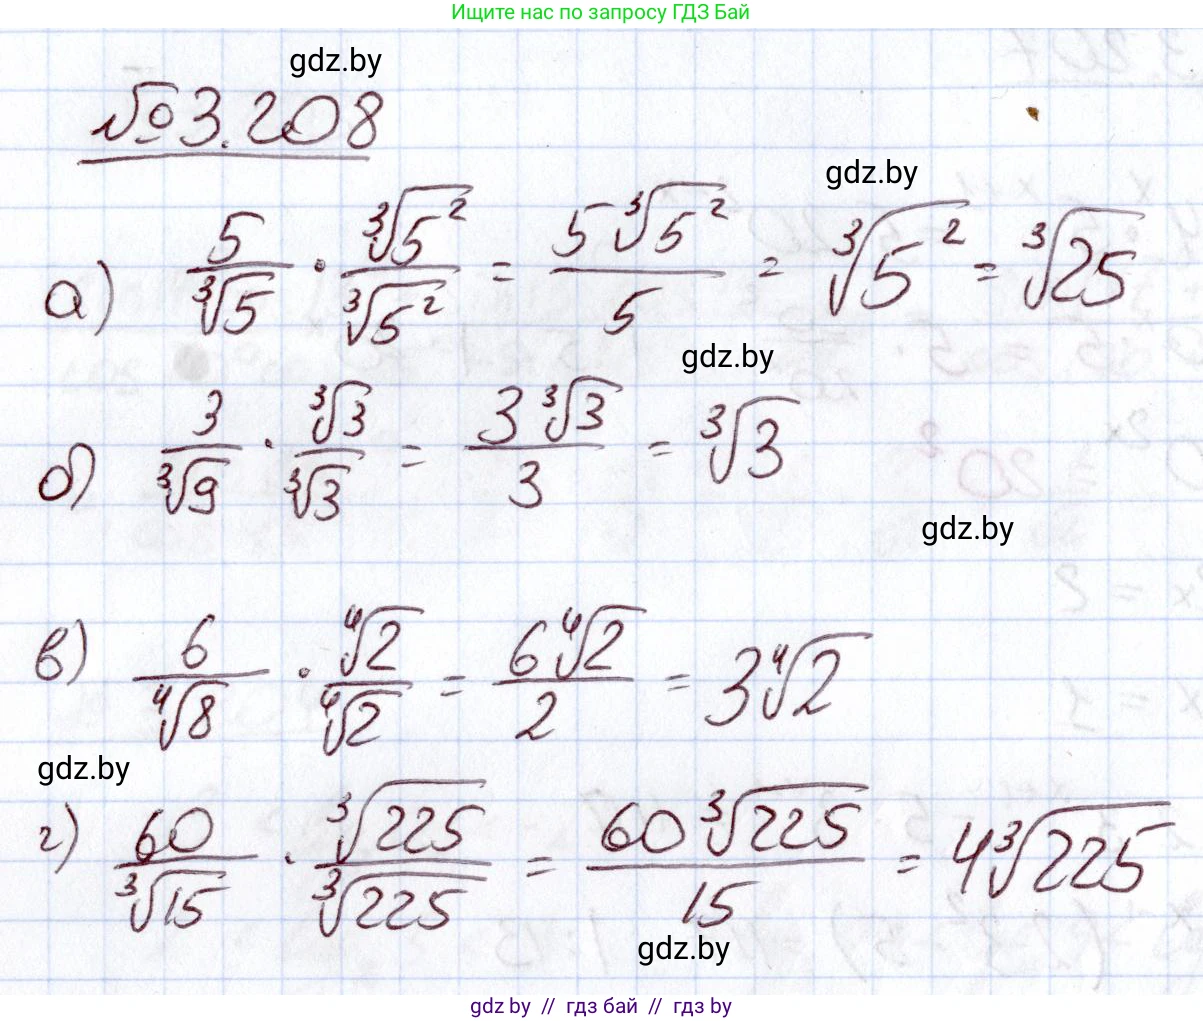 Ищите нас по запросу ГДЗ Бай
gdz.by
№ 3.208
gdz.by
а) 5/∛5 · ∛5²/∛5² = 5∛5²/5 = ∛5² = ∛25
gdz.by
б) 3/∛9 · ∛3/∛3 = 3∛3/3 = ∛3
gdz.by
в) 6/∜8 · ∜2/∜2 = 6∜2/2 = 3∜2
gdz.by
г) 60/∛15 · ∛225/∛225 = 60∛225/15 = 4∛225
gdz.by
gdz.by // гдз бай // гдз by